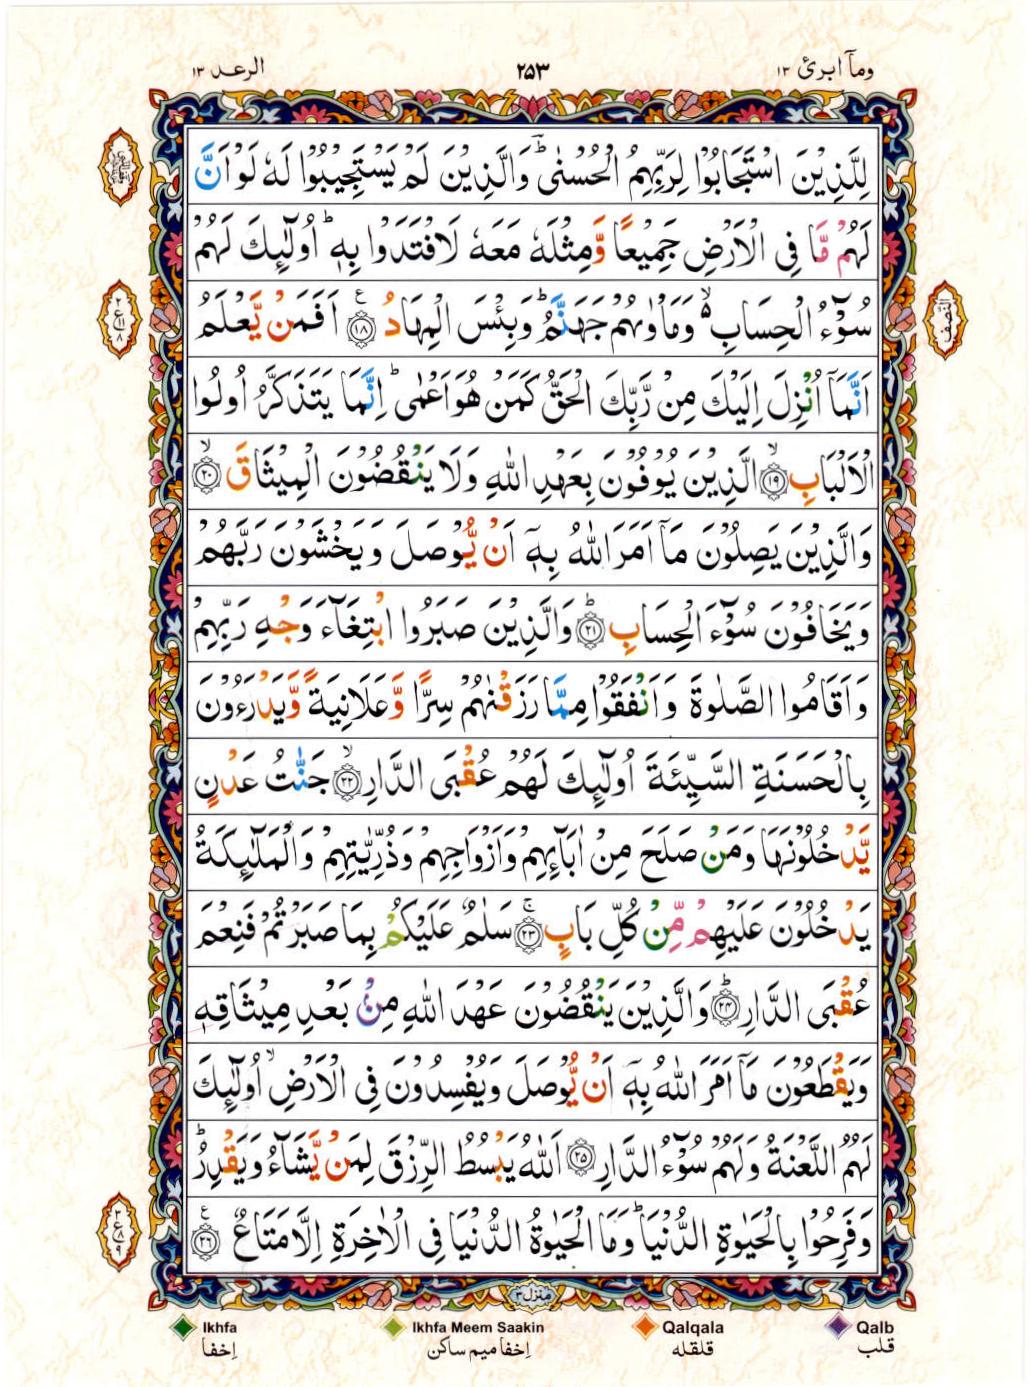 ومآ ابرئ ١٣
٢٥٣
الرعد ١٣
لِلَّذِيْنَ اسْتَجَابُوْا لِرَبِّهِمُ الْحُسْنٰىؔ ؕ وَالَّذِيْنَ لَمْ يَسْتَجِيْبُوْا لَهٗ لَوْ اَنَّ
لَهُمْ مَّا فِى الْاَرْضِ جَمِيْعًا وَّمِثْلَهٗ مَعَهٗ لَافْتَدَوْا بِهٖ ؕ اُولٰٓئِكَ لَهُمْ
سُوْٓءُ الْحِسَابِ ۙ۬ وَمَاْوٰىهُمْ جَهَنَّمُ ؕ وَبِئْسَ الْمِهَادُ ﴿١٨﴾ اَفَمَنْ يَّعْلَمُ
اَنَّمَاۤ اُنْزِلَ اِلَيْكَ مِنْ رَّبِّكَ الْحَقُّ كَمَنْ هُوَ اَعْمٰى ؕ اِنَّمَا يَتَذَكَّرُ اُولُوا
الْاَلْبَابِ ﴿١٩﴾ۙ الَّذِيْنَ يُوْفُوْنَ بِعَهْدِ اللّٰهِ وَلَا يَنْقُضُوْنَ الْمِيْثَاقَ ﴿٢٠﴾ۙ
وَالَّذِيْنَ يَصِلُوْنَ مَاۤ اَمَرَ اللّٰهُ بِهٖۤ اَنْ يُّوْصَلَ وَيَخْشَوْنَ رَبَّهُمْ
وَيَخَافُوْنَ سُوْٓءَ الْحِسَابِ ﴿٢١﴾ؕ وَالَّذِيْنَ صَبَرُوا ابْتِغَآءَ وَجْهِ رَبِّهِمْ
وَاَقَامُوا الصَّلٰوةَ وَاَنْفَقُوْا مِمَّا رَزَقْنٰهُمْ سِرًّا وَّعَلَانِيَةً وَّيَدْرَءُوْنَ
بِالْحَسَنَةِ السَّيِّئَةَ اُولٰٓئِكَ لَهُمْ عُقْبَى الدَّارِ ﴿٢٢﴾ۙ جَنّٰتُ عَدْنٍ
يَّدْخُلُوْنَهَا وَمَنْ صَلَحَ مِنْ اٰبَآئِهِمْ وَاَزْوَاجِهِمْ وَذُرِّيّٰتِهِمْ وَالْمَلٰٓئِكَةُ
يَدْخُلُوْنَ عَلَيْهِمْ مِّنْ كُلِّ بَابٍ ﴿٢٣﴾ۚ سَلٰمٌ عَلَيْكُمْ بِمَا صَبَرْتُمْ فَنِعْمَ
عُقْبَى الدَّارِ ﴿٢٤﴾ؕ وَالَّذِيْنَ يَنْقُضُوْنَ عَهْدَ اللّٰهِ مِنْۢ بَعْدِ مِيْثَاقِهٖ
وَيَقْطَعُوْنَ مَاۤ اَمَرَ اللّٰهُ بِهٖۤ اَنْ يُّوْصَلَ وَيُفْسِدُوْنَ فِى الْاَرْضِ ۙ اُولٰٓئِكَ
لَهُمُ اللَّعْنَةُ وَلَهُمْ سُوْٓءُ الدَّارِ ﴿٢٥﴾ اَللّٰهُ يَبْسُطُ الرِّزْقَ لِمَنْ يَّشَآءُ وَيَقْدِرُ ؕ
وَفَرِحُوْا بِالْحَيٰوةِ الدُّنْيَا ؕ وَمَا الْحَيٰوةُ الدُّنْيَا فِى الْاٰخِرَةِ اِلَّا مَتَاعٌ ﴿٢٦﴾
النصف
٢
ع ١١
٨
٣
ع ٨
٩
منزل ٣
Ikhfa
اِخفا
Ikhfa Meem Saakin
اِخفا ميم ساكن
Qalqala
قلقله
Qalb
قلب